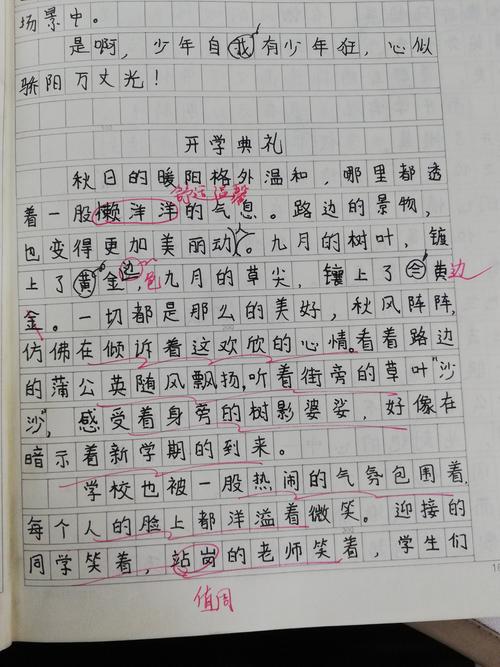 场景中。
是啊，少年自我有少年狂，心似
骄阳万丈光！
开学典礼
秋日的暖阳格外温和，哪里都透
舒适温馨
着一股懒洋洋的气息。路边的景物，
也变得更加美丽动人。九月的树叶，镀
上了黄金边，九月的草尖，镶上了黄边
色
金。一切都是那么的美好，秋风阵阵，
仿佛在倾诉着这欢欣的心情。看着路边
的蒲公英随风飘扬，听着街旁的草叶"沙
沙"，感受着身旁的树影婆娑，好像在
暗示着新学期的到来。
学校也被一股热闹的气氛包围着，
每个人的脸上都洋溢着微笑。迎接的
同学笑着，站岗的老师笑着，学生们
值周